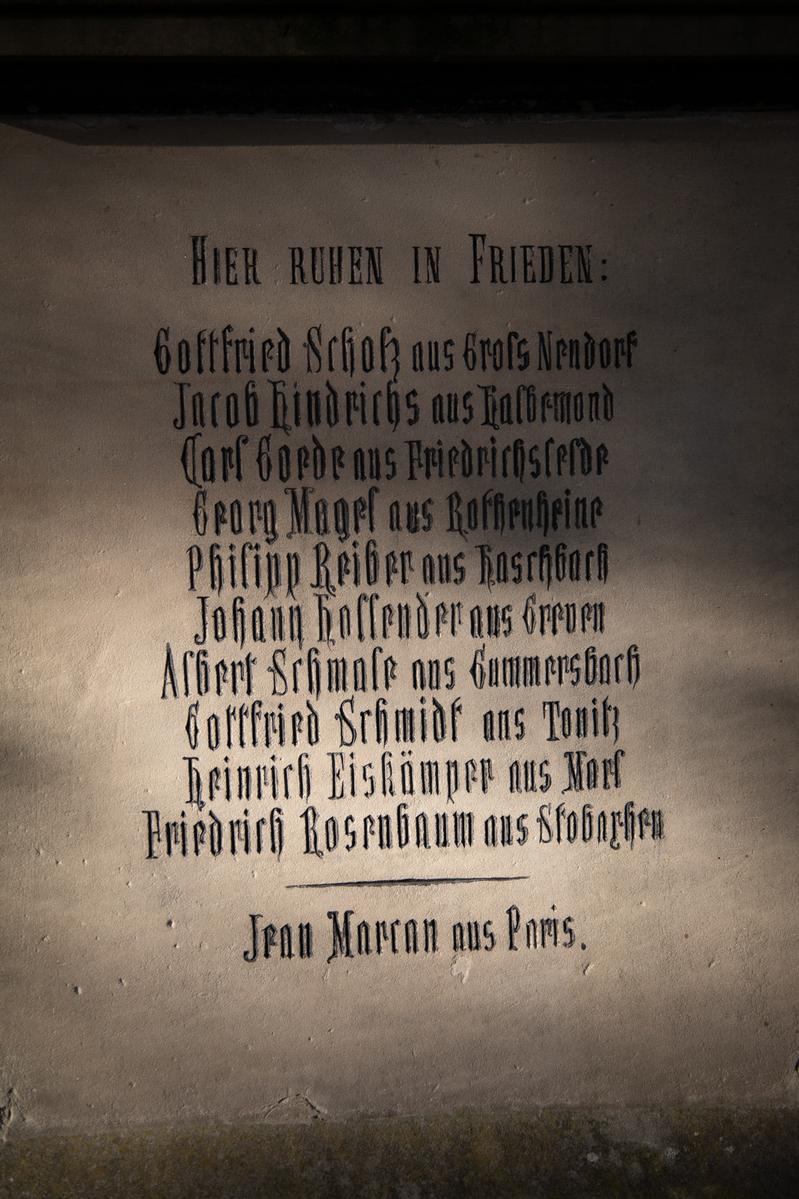 HIER RUHEN IN FRIEDEN:
Gottfried Scholz aus Gross Neudorf
Jacob Hindrichs aus Halbemond
Carl Goede aus Friedrichsfelde
Georg Magel aus Rothenheine
Philipp Reiber aus Haschbach
Johann Hollender aus Greven
Albert Schmale aus Gummersbach
Gottfried Schmidt aus
Heinrich Eiskämper aus Marl
Friedrich Rosenbaum aus
Jean Marcan aus Paris.